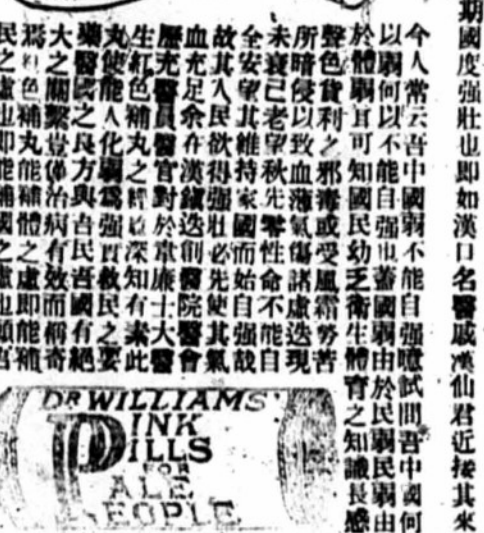 期國度强壯也即如漢口名醫戚漢仙君近接其來
今人常云吾中國弱不能自强噫試問吾中國何
以弱何以不能自强也蓋國弱由於民弱民弱由
於體弱耳可知國民幼乏衛生體育之知識長感
聲色貨利之邪毒或受風霜勞苦
所暗侵以致血薄氣傷諸虛迭現
未衰已老望秋先零性命不能自
全安望其維持家國而始自强哉
故其人民欲得强壯必先使其氣
血充足余在漢鎮迭創醫院醫會
歷充醫員醫官對於韋廉士大醫
生紅色補丸之經驗深知有素此
丸使能人化弱爲强實救民之要
藥醫國之良方與吾民吾國有絕
大之關繫豈僅治病有效而稱奇
焉紅色補丸能補體之虛即能補
民之虛也即能補國之虛也願吾
DR WILLIAMS'
PINK
PILLS
FOR
PALE
PEOPLE